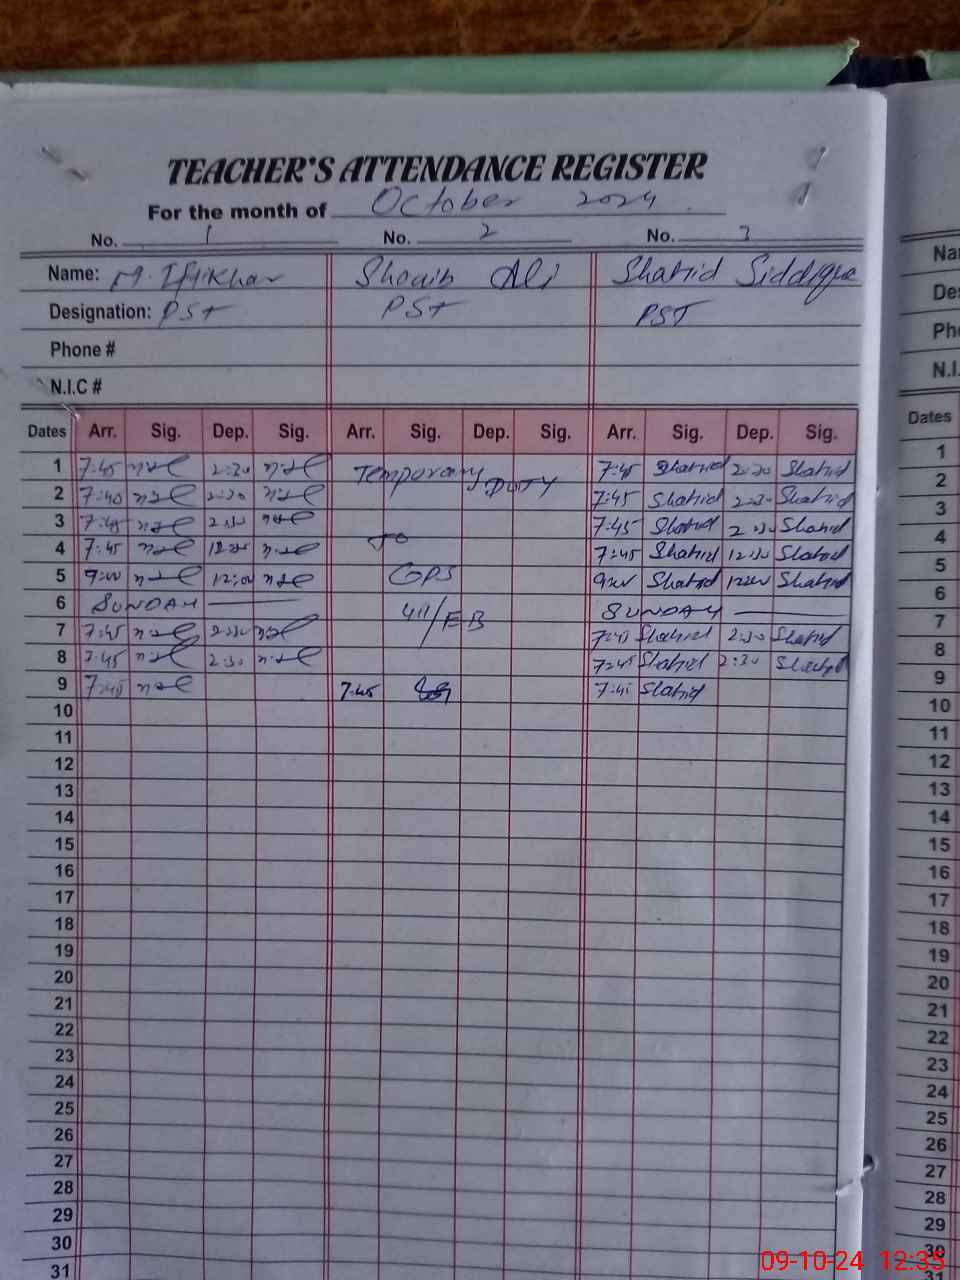 TEACHER'S ATTENDANCE REGISTER
For the month of October 2024
No. 1 No. 2 No. 3
Name: M. Iftikhar Shoaib Ali Shahid Siddique
Designation: PST PST PST
Phone #
N.I.C #
Dates Arr. Sig. Dep. Sig. Arr. Sig. Dep. Sig. Arr. Sig. Dep. Sig.
1 7:45 2:30 Temporary 7:45 Shahid 2:30 Shahid
2 7:40 2:30 DUTY 7:45 Shahid 2:30 Shahid
3 7:45 2:30 7:45 Shahid 2:30 Shahid
4 7:45 12:30 To 7:45 Shahid 12:30 Shahid
5 9:00 12:00 GPS 9:00 Shahid 12:00 Shahid
6 SUNDAY 411/EB SUNDAY
7 7:45 2:30 7:45 Shahid 2:30 Shahid
8 7:45 2:30 7:45 Shahid 2:30 Shahid
9 7:45 7:45 7:45 Shahid
10
11
12
13
14
15
16
17
18
19
20
21
22
23
24
25
26
27
28
29
30
31
Dates
1
2
3
4
5
6
7
8
9
10
11
12
13
14
15
16
17
18
19
20
21
22
23
24
25
26
27
28
29
30
31
09-10-24 12:35